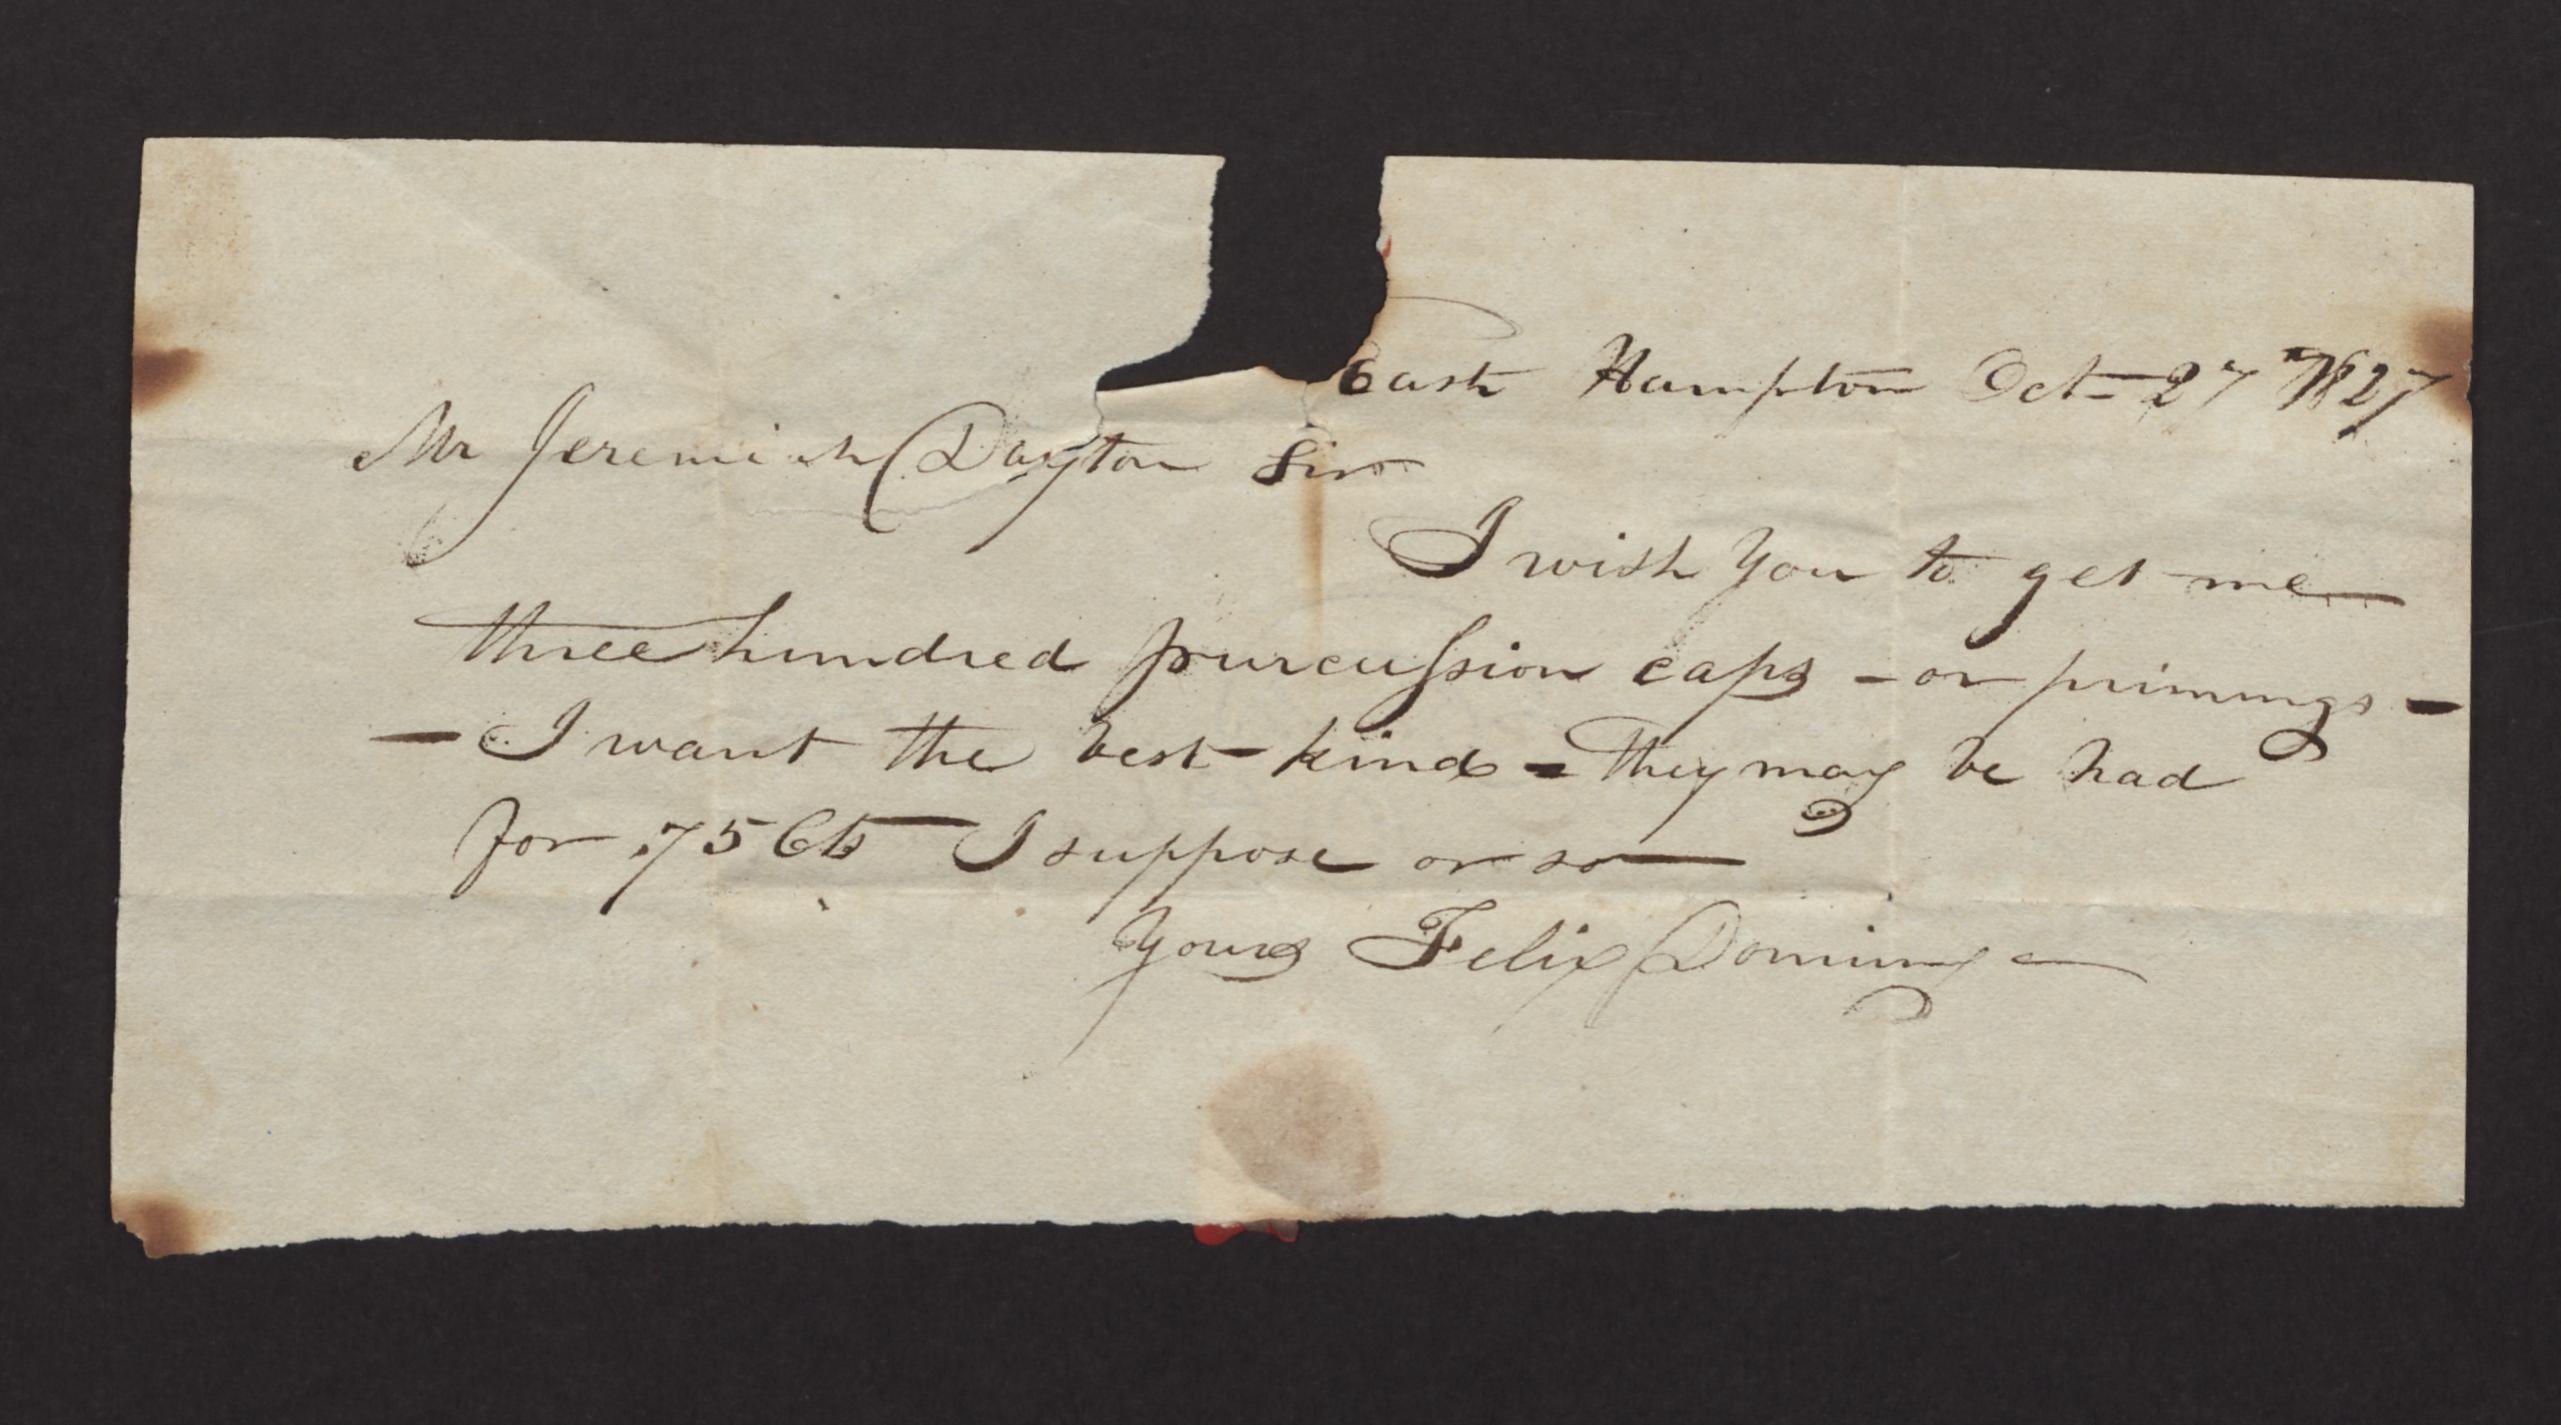 East Hampton Oct- 27 1827
Mr Jeremiah Dayton Sir
I wish you to get me
three hundred purcussion caps - or primings -
- I want the best kind - They may be had
for 75 Cts I suppose or so
Yours Felix Dominy